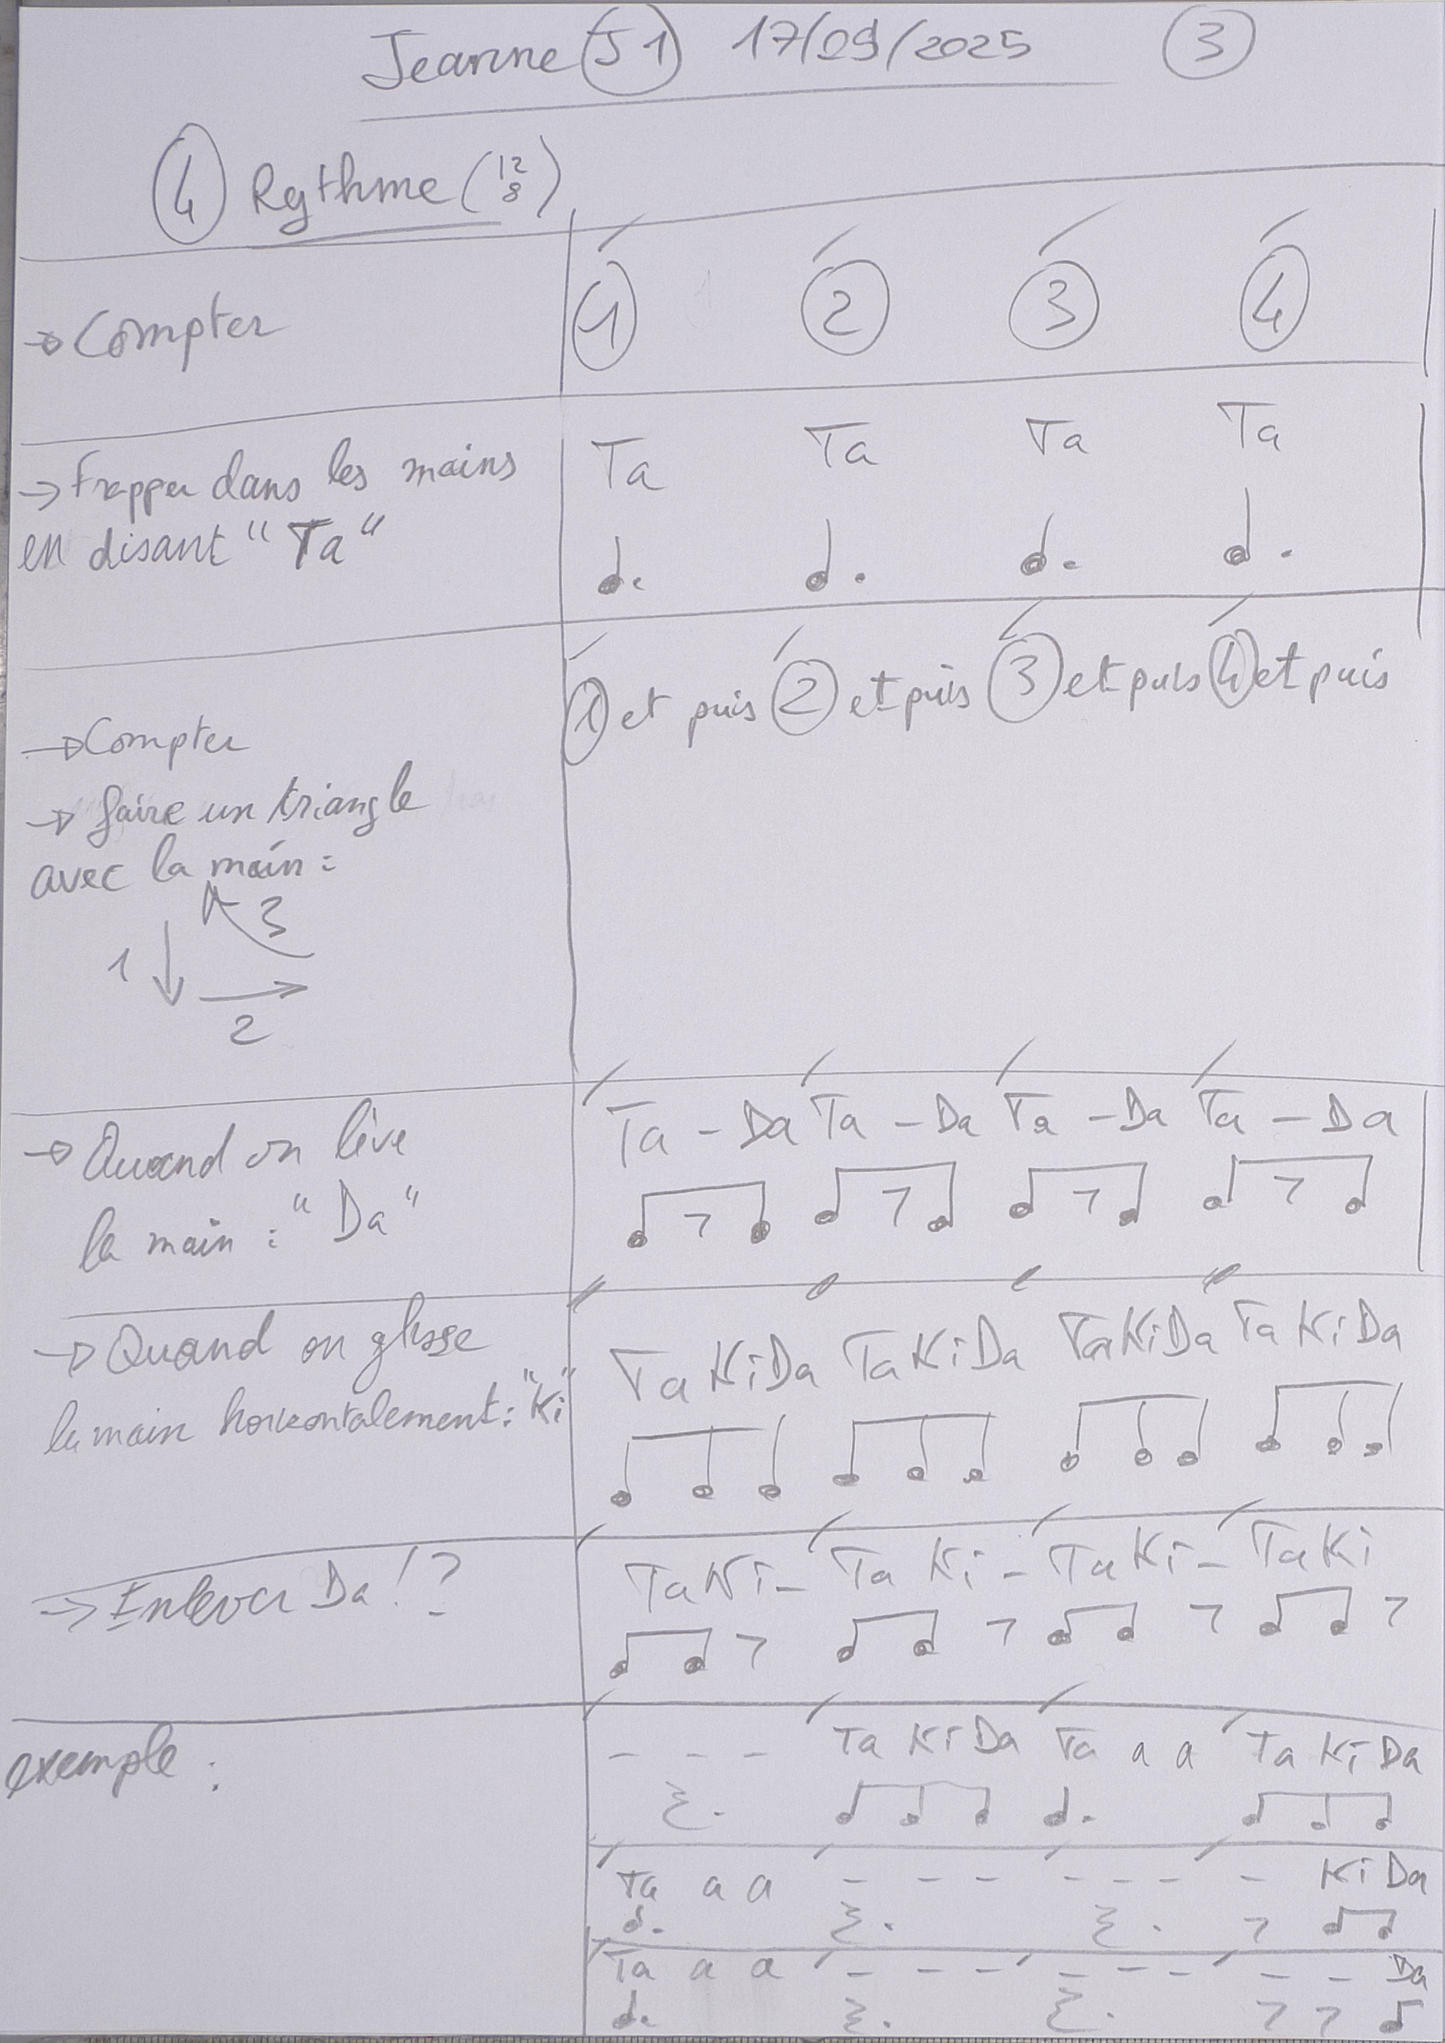 Jeanne J1 17/09/2025 3
4 Rythme (12/8)
→ Compter
1 2 3 4
→ Frapper dans les mains
en disant "Ta"
Ta Ta Ta Ta
→ Compter
→ faire un triangle
avec la main :
1 2 3
1 et puis 2 et puis 3 et puis 4 et puis
→ Quand on lève
la main : "Da"
Ta - Da Ta - Da Ta - Da Ta - Da
→ Quand on glisse
la main horizontalement : "Ki"
Ta Ki Da Ta Ki Da Ta Ki Da Ta Ki Da
→ Enlever Da !?
Ta Ki - Ta Ki - Ta Ki - Ta Ki
exemple :
- - - Ta Ki Da Ta a a Ta Ki Da
Ta a a - - - - - - - Ki Da
Ta a a - - - - - - - - Da